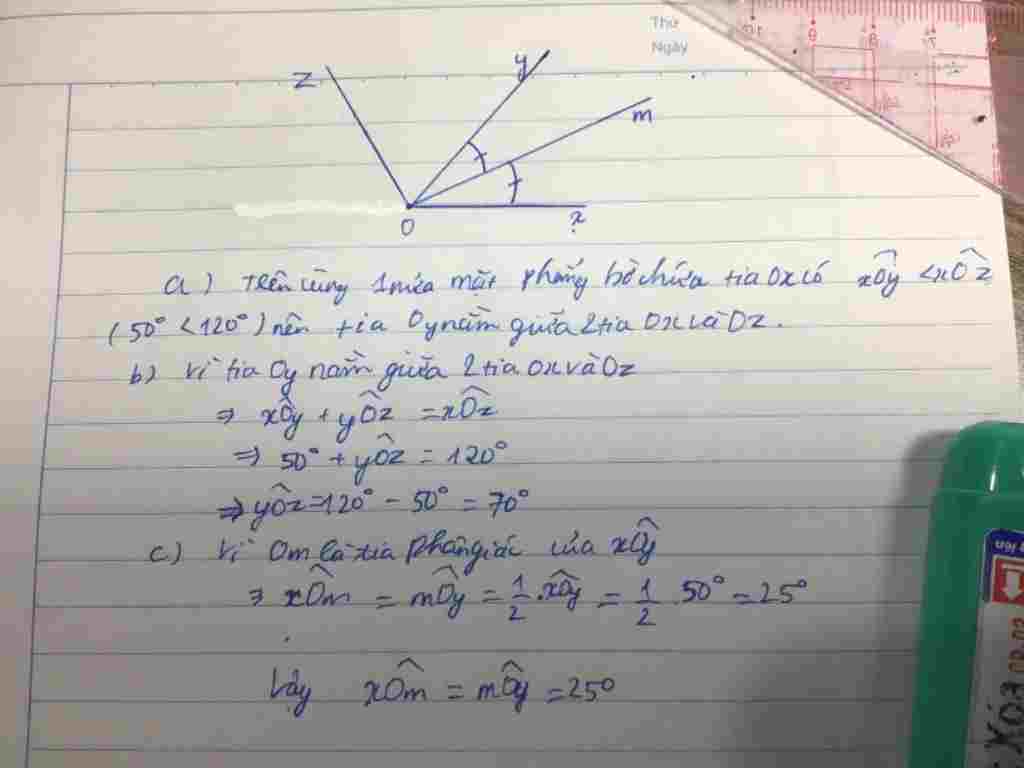 Thứ
Ngày
z
y
m
O
x
a) Trên cùng 1 nửa mặt phẳng bờ chứa tia Ox có xÔy < xÔz
(50° < 120°) nên tia Oy nằm giữa 2 tia Ox và Oz.
b) vì tia Oy nằm giữa 2 tia Ox và Oz
⇒ xÔy + yÔz = xÔz
⇒ 50° + yÔz = 120°
⇒ yÔz = 120° - 50° = 70°
c) Vì Om là tia phân giác của xÔy
⇒ xÔm = mÔy = 1/2 . xÔy = 1/2 . 50° = 25°
Vậy xÔm = mÔy = 25°
XÓA